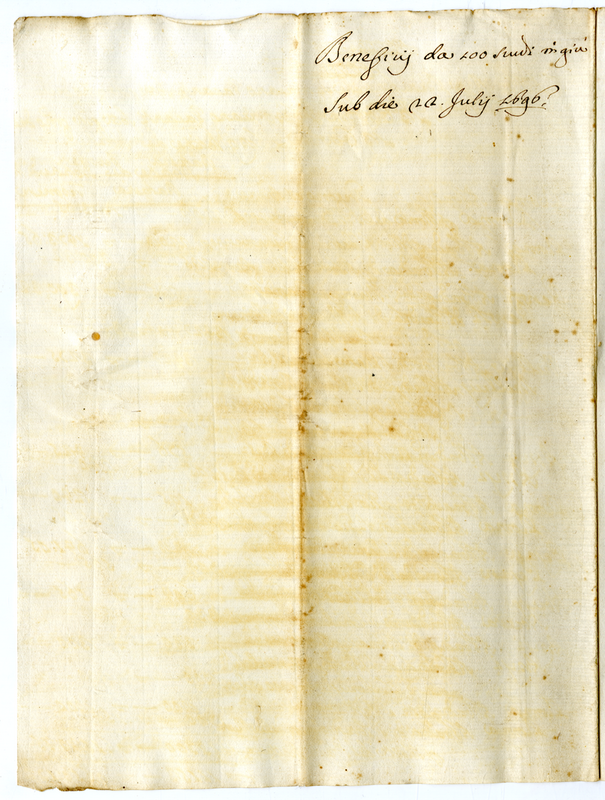 Beneficij da 100 scudi in giù
Sub die 22. July 1696.